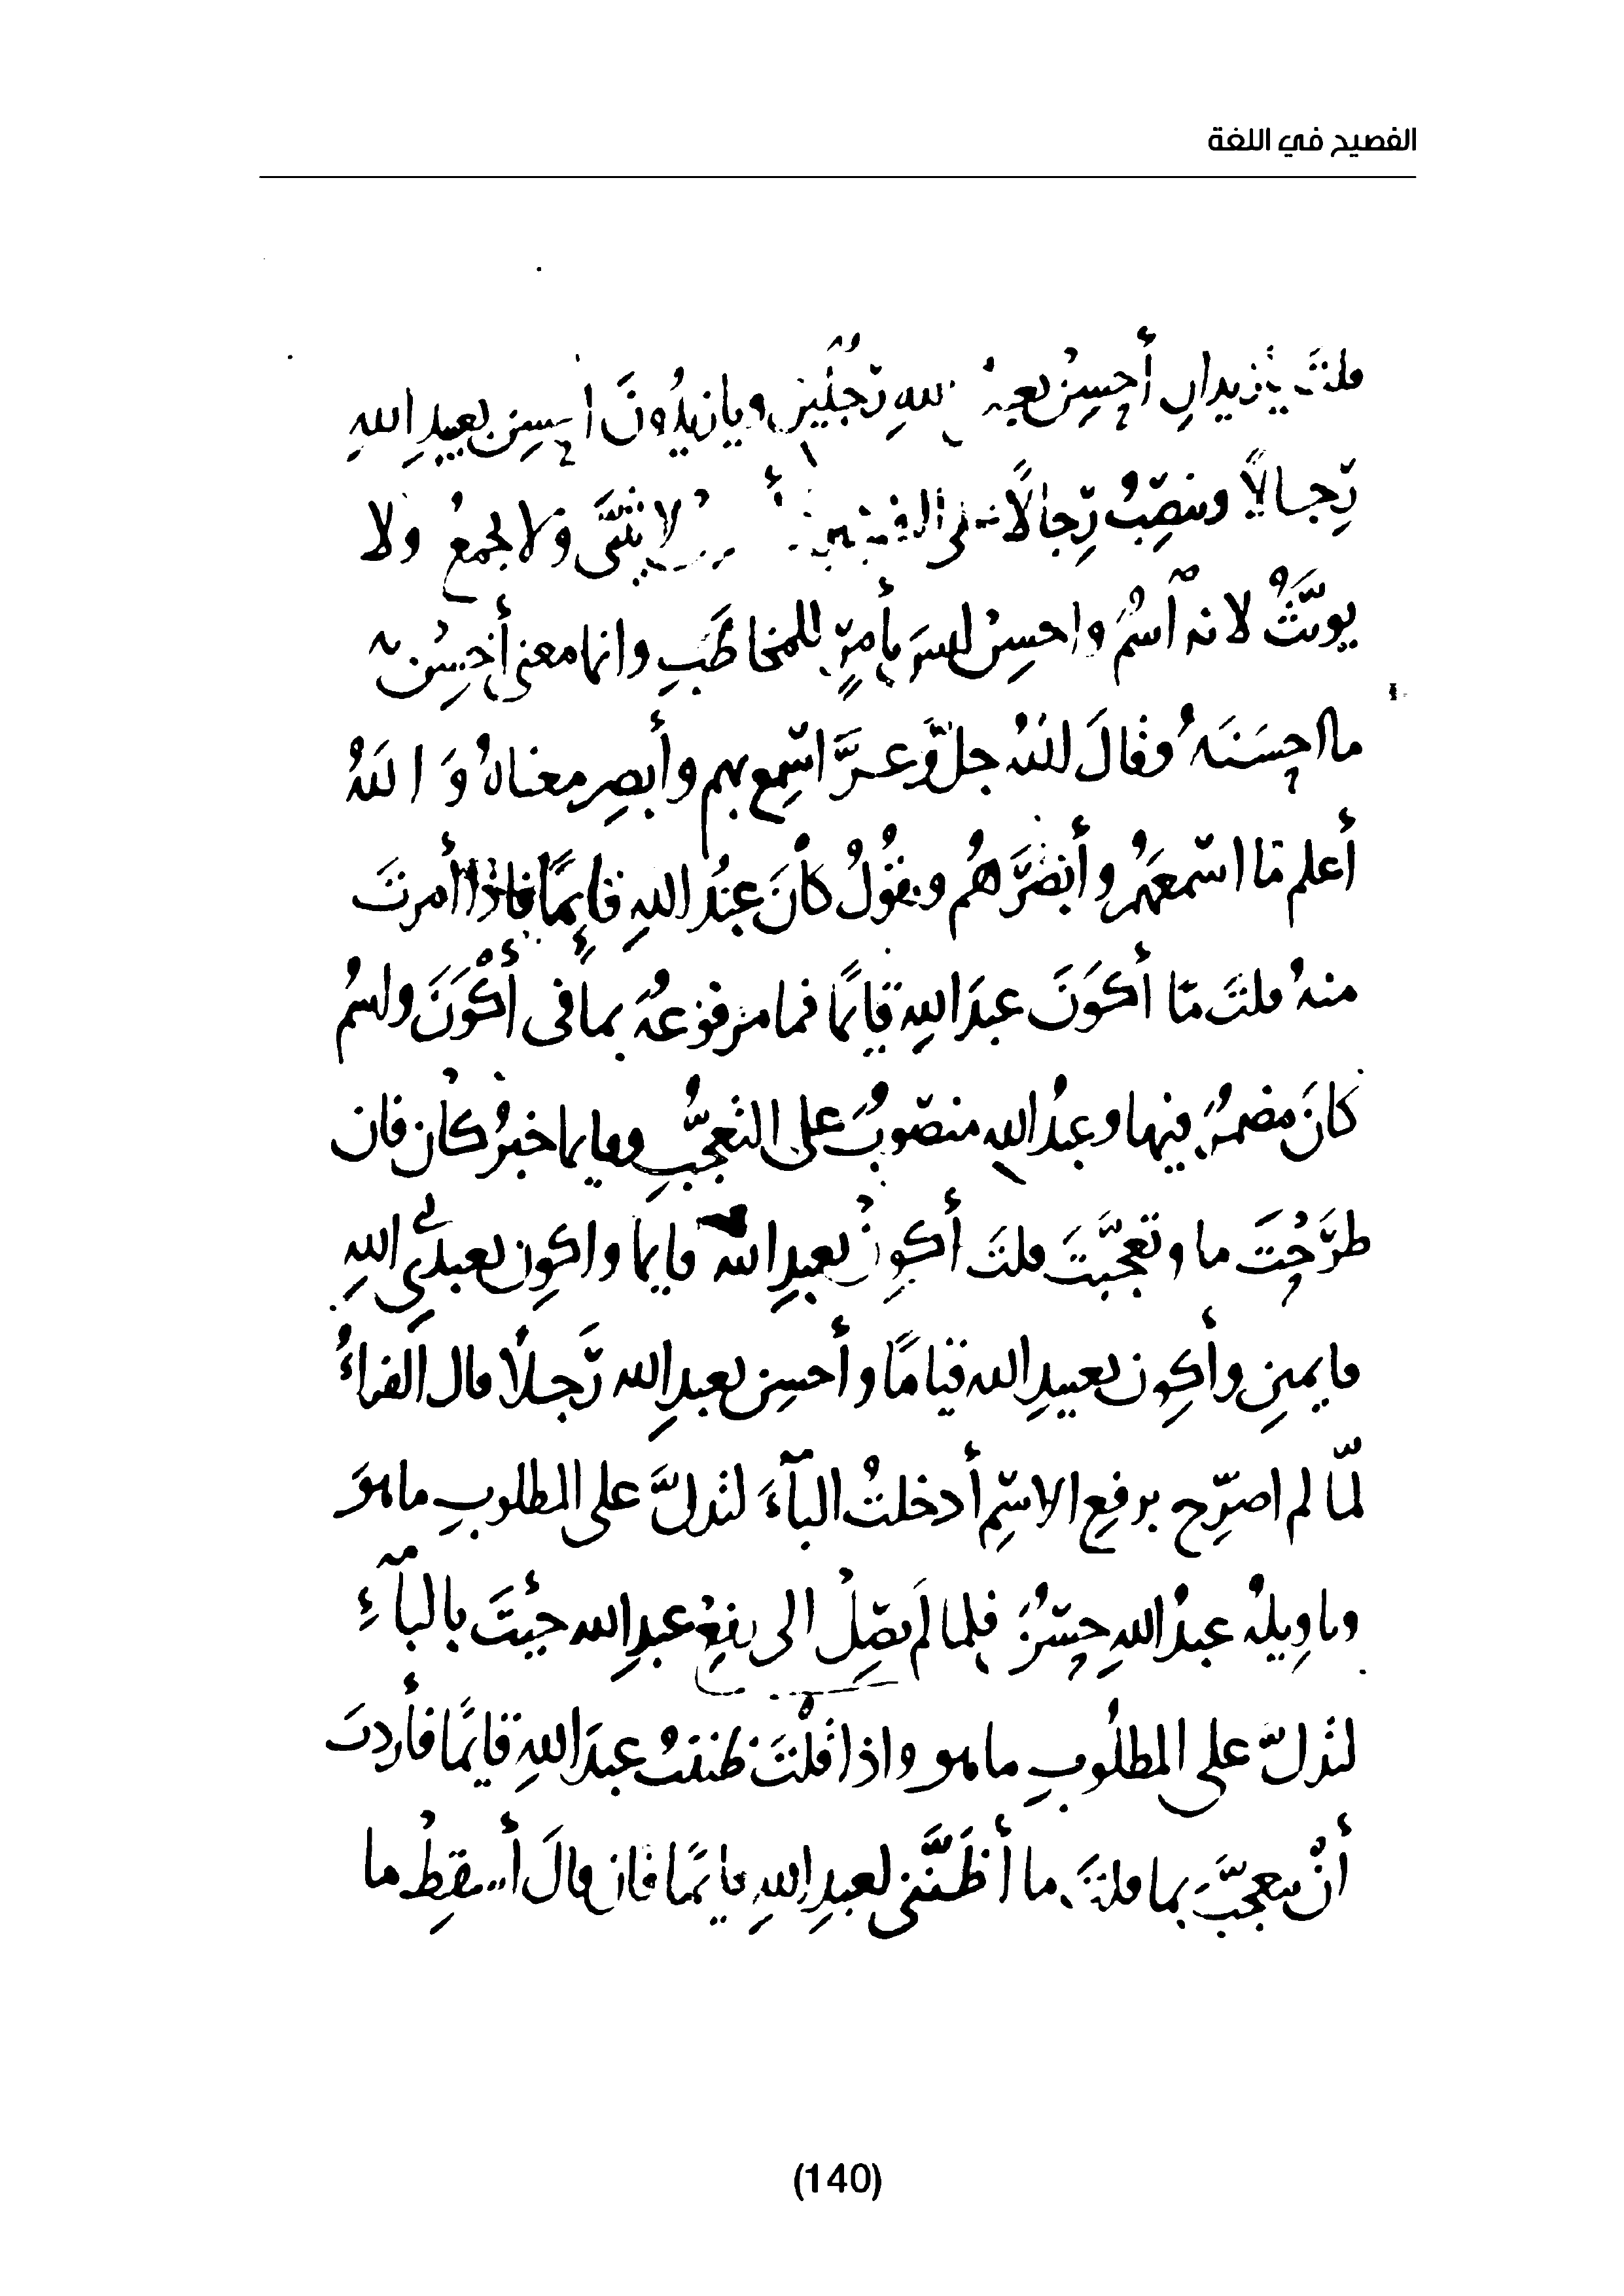 الفصيح في اللغة
قلتَ يا زيدانِ أحسِنْ بعبدَيِ اللهِ رَجُلَينِ ويا زيدُونَ احسِن بعبيدِ اللهِ
رِجالًا وتنصِبُ رِجالًا على التفسير لا يثنَّى ولا يجمعُ ولا
يونَّثُ لانه اسمٌ واحسِنْ ليسَ بأمرٍ للمخاطَبِ وانما معنى أحسِن به
ما احسَنَهُ وقالَ اللهُ جلَّ وعزَّ اسمِع بهم وأبصِر معناهُ وَاللهُ
أعلم ما اسمعَهم وأبصَرَهُم وتقُولُ كانَ عبدُ اللهِ قائِمًا فاذا أمرتَ
منهُ قلتَ ما أكوَنَ عبدَ اللهِ قايمًا فما مرفوعةٌ بما في أكْوَنَ واسمُ
كانَ مضمرٌ فيها وعبدُ اللهِ منصوبٌ على التعجُّبِ وقايما خبرُ كان فان
طرَحْتَ ما وتعجَّبتَ قلتَ أكوِنْ بعبدِ اللهِ قايما واكوِن بعبدَيِ اللهِ
قايمينِ وأكوِن بعبيدِ الله قيامًا وأحسِن بعبدِ الله رَجلًا قال الفراءُ
لمّا لم اصرّح برفعِ الاسمِ أدخلتُ البآءَ لتدلَّ على المطلوبِ ما هوَ
وتاويلهُ عبدُ اللهِ حسَنٌ فلما لم تصِلْ الى رفعِ عبدِ الله جئتَ بالبآءِ
لتدلّ على المطلُوبِ ما هو واذا قُلْتَ ظننتُ عبدَ اللهِ قايمًا فأردتَ
أنْ تتعجَّبَ بما قلتَ ما أظَنَّني لعبدِ اللهِ قايمًا فان قالَ أسقِطْ ما
(140)